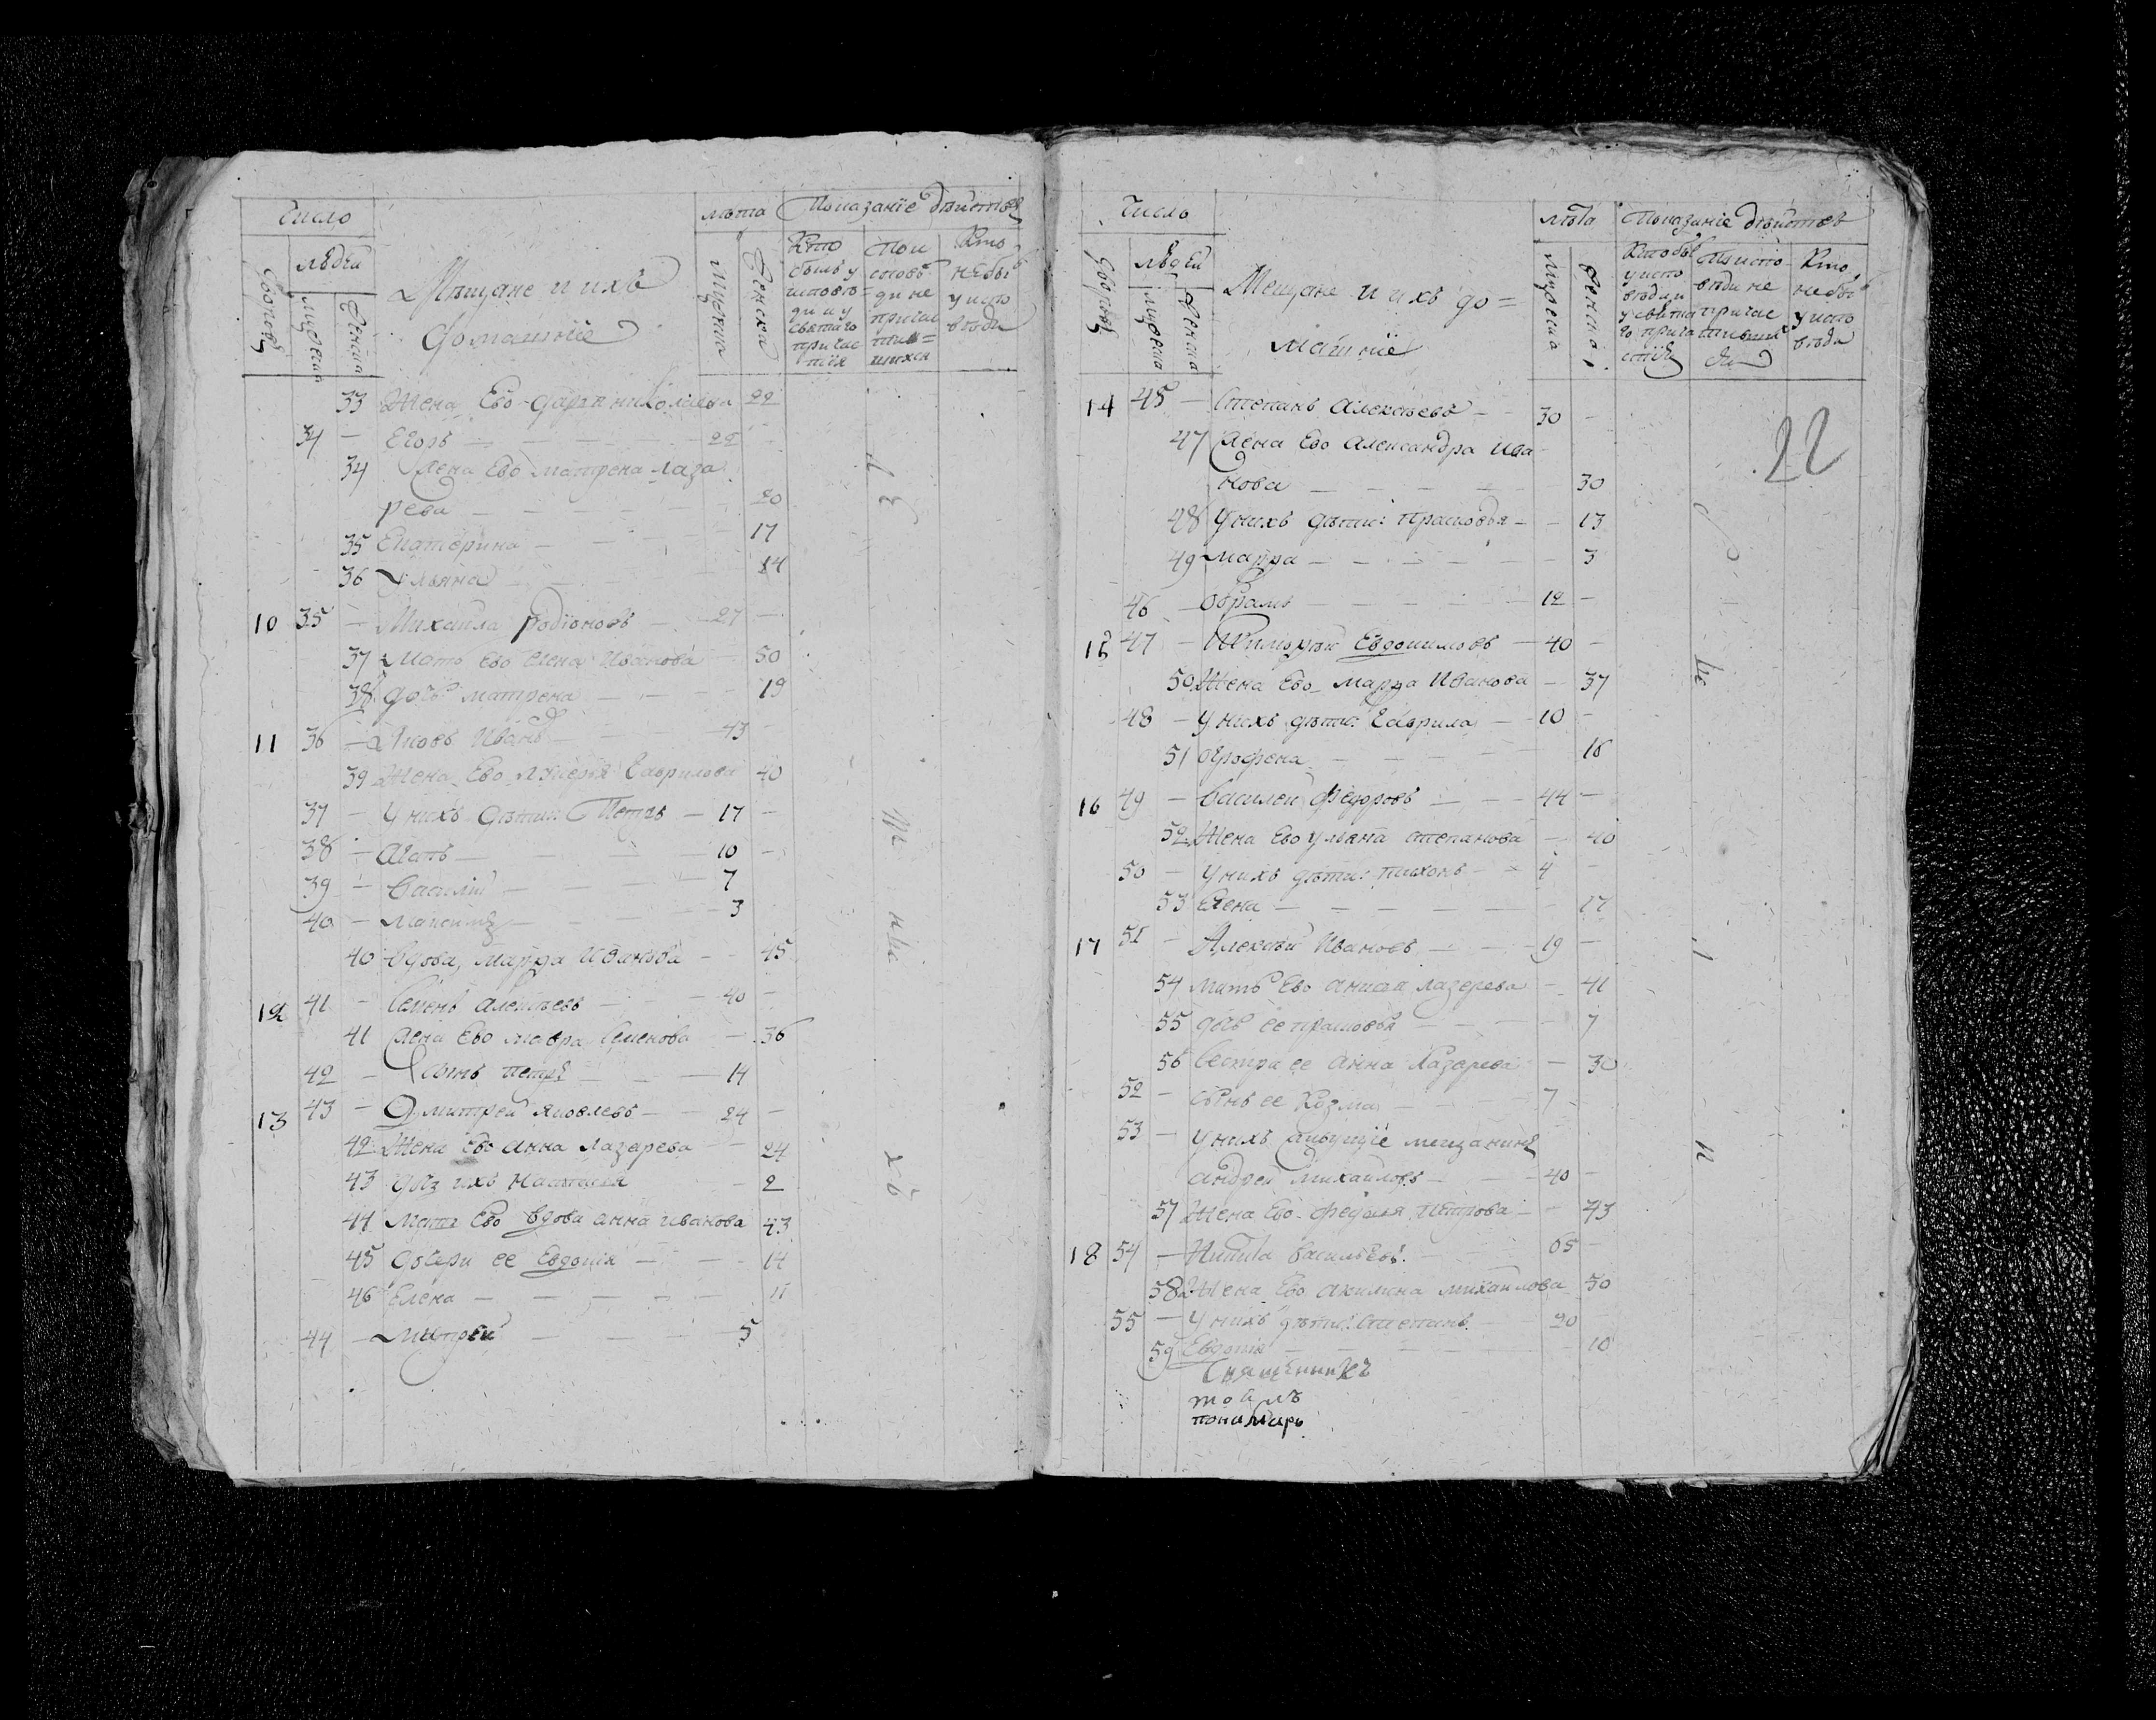 Число
лѣта Показанiе дѣйствъ
людей
Мѣщане и ихъ
домашнiе
Дворовъ
Мужеска
Женска
Мужска
Женска
Кто
былъ у
исповѣ=
ди и у
святаго
причас
тiя
По и
сповѣ
ди не
причас
тив=
шихся
Кто
не былъ
у испо
вѣди
33 Жена Ево дарья николаева 22
34 — Егоръ — 22
34 Жена Ево матрена лаза
рева — 20
35 Екатерина — 17
36 Ульяна — 14
10 35 — Михаила Родiоновъ — 27 —
37 Мать Ево Елена Иванова — 50
38 дочь матрена — 19
11 36 — Яковъ Иванъ — 43 —
39 Жена Ево лукерья Гаврилова 40
37 — У нихъ дѣти: Петръ — 17 —
38 — Агапъ — 10 —
39 — Василiй — 7
40 — Максимъ — 3
40 вдова, Марфа Иванова — 45
12 41 — Семенъ алексѣевъ — 40 —
41 Жена Ево мавра Семенова — 36
42 — Сынъ петръ — 14
13 43 — Дмитрей яковлевъ — 24 —
42 Жена Ево анна лазарева — 24
43 дочь ихъ Настасья — 2
44 Мать Ево вдова анна иванова 43
45 дочери ее Евдокiя — 14
46 Елена — 11
44 — Митрей — 5
Число
лѣта Показанiе дѣйствъ
людей
Мещане и ихъ до=
машнiе
Дворовъ
Мужеска
Женска
Мужеска
Женска
Кто былъ
у испо
вѣди и
у свята
го прича
стiя
По испо
вѣди не
причас
тивших
ся
Кто
не был
у испо
вѣди
22
14 45 — Степанъ алексѣевъ — 30 —
47 Жена Ево александра ива
нова — 30
48 У нихъ дѣти: прасковья — 13
49 марфа — 3
46 — Абрамъ — 12 —
15 47 — Тимофѣй Евдокимовъ — 40 —
50 Жена Ево марфа Иванова — 37
48 — у нихъ дѣти: Гаврила — 10 —
51 Афрофена — 16
16 49 — Василей федоровъ — 44 —
52 Жена Ево ульяна степанова — 40
50 — У нихъ дѣти: тихонъ — 4
53 Елена — 17
17 51 — Алексѣй Ивановъ — 19 —
54 мать Ево анисья лазарева — 41
55 дочь ее прасковья — 7
56 Сестра ее анна Лазарева — 30
52 — сынъ ее Козма — 7
53 — У нихъ живущiе мещанинъ
андрей михайловъ — 40 —
57 Жена Ево федосья петрова — 43
18 54 — Никита Васильевъ — 65 —
58 Жена Ево акилина михайлова 50
55 — У нихъ дѣти: Степанъ — 20
59 Евдокiя — 10
Священникъ
пономарь